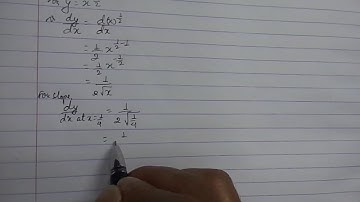 y = x^½
⇒ dy/dx = d(x)^½/dx
= 1/2 x^(1/2 - 1)
= 1/2 x^(-1/2)
= 1/(2√x)
For slope,
dy/dx at x = 1/9 = 1/(2√(1/9))
= 1